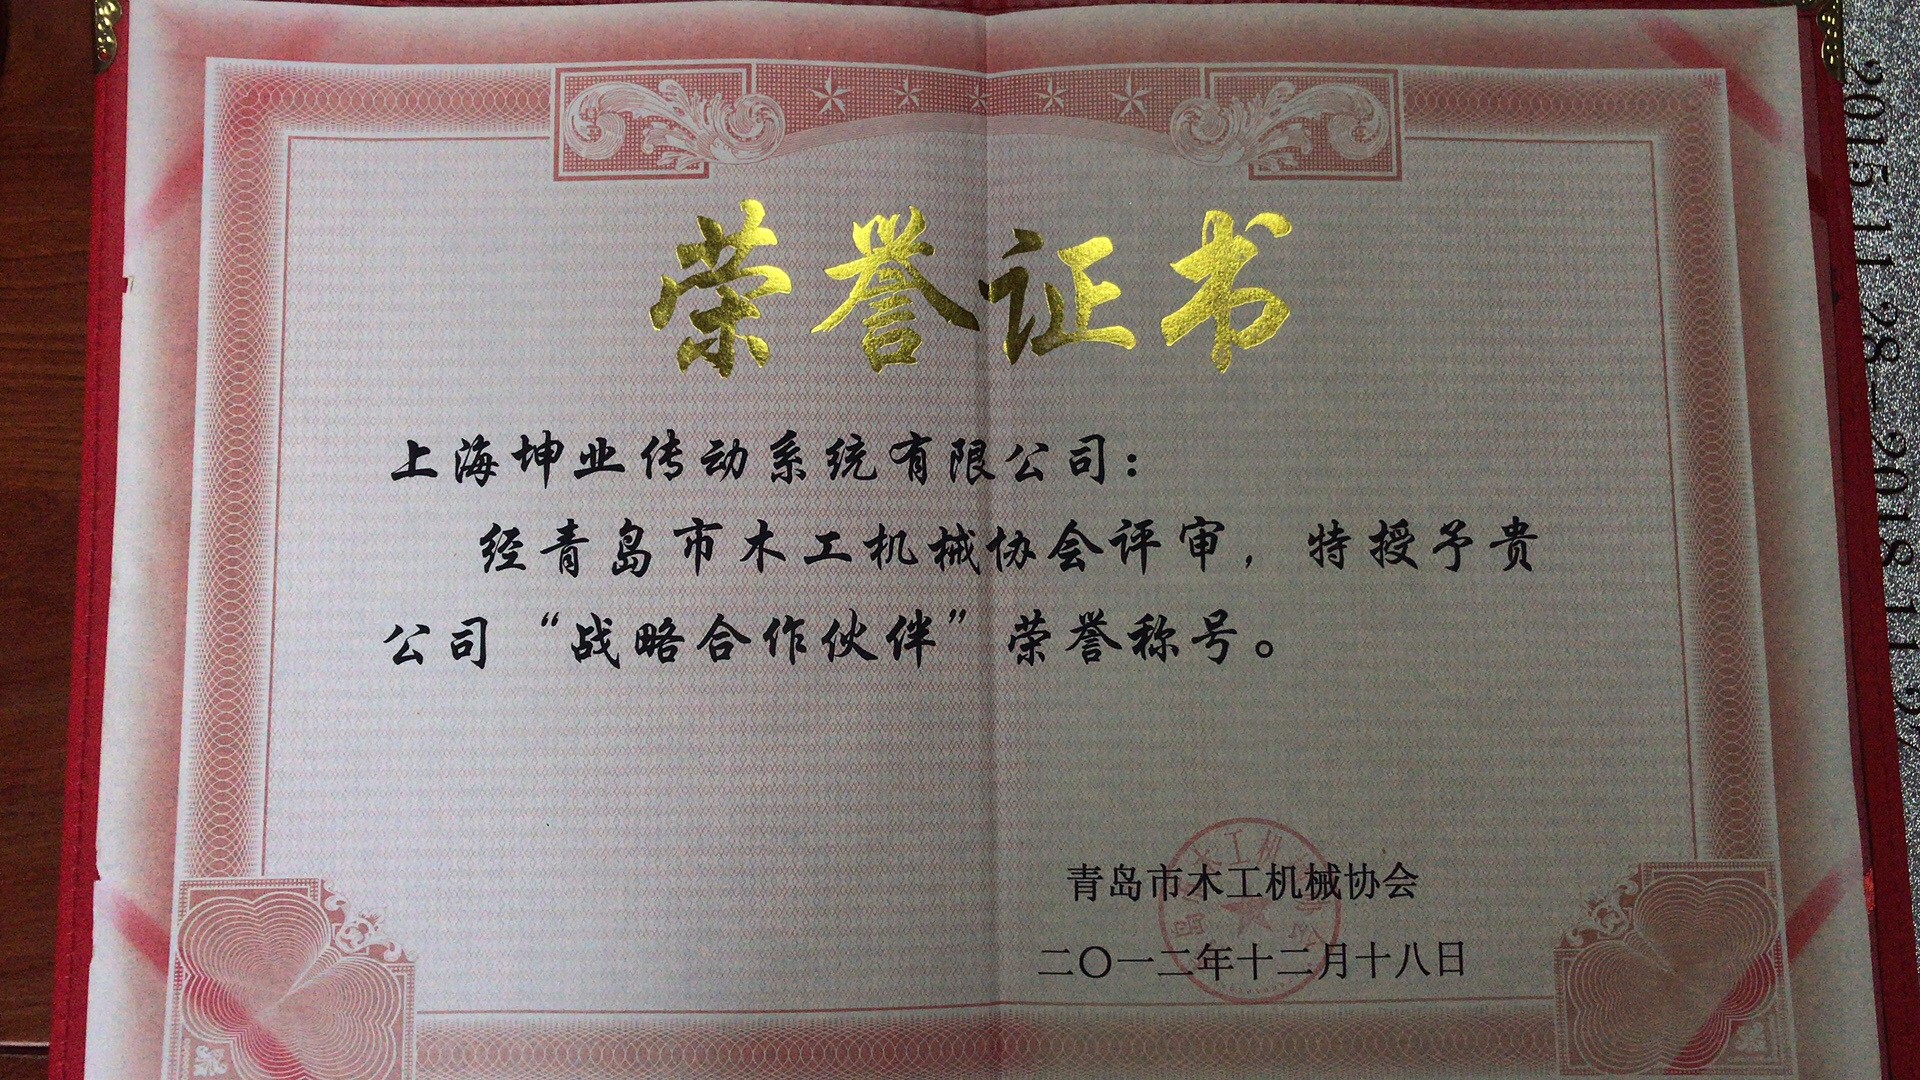 荣誉证书
上海坤业传动系统有限公司：
经青岛市木工机械协会评审，特授予贵
公司“战略合作伙伴”荣誉称号。
青岛市木工机械协会
二〇一二年十二月十八日